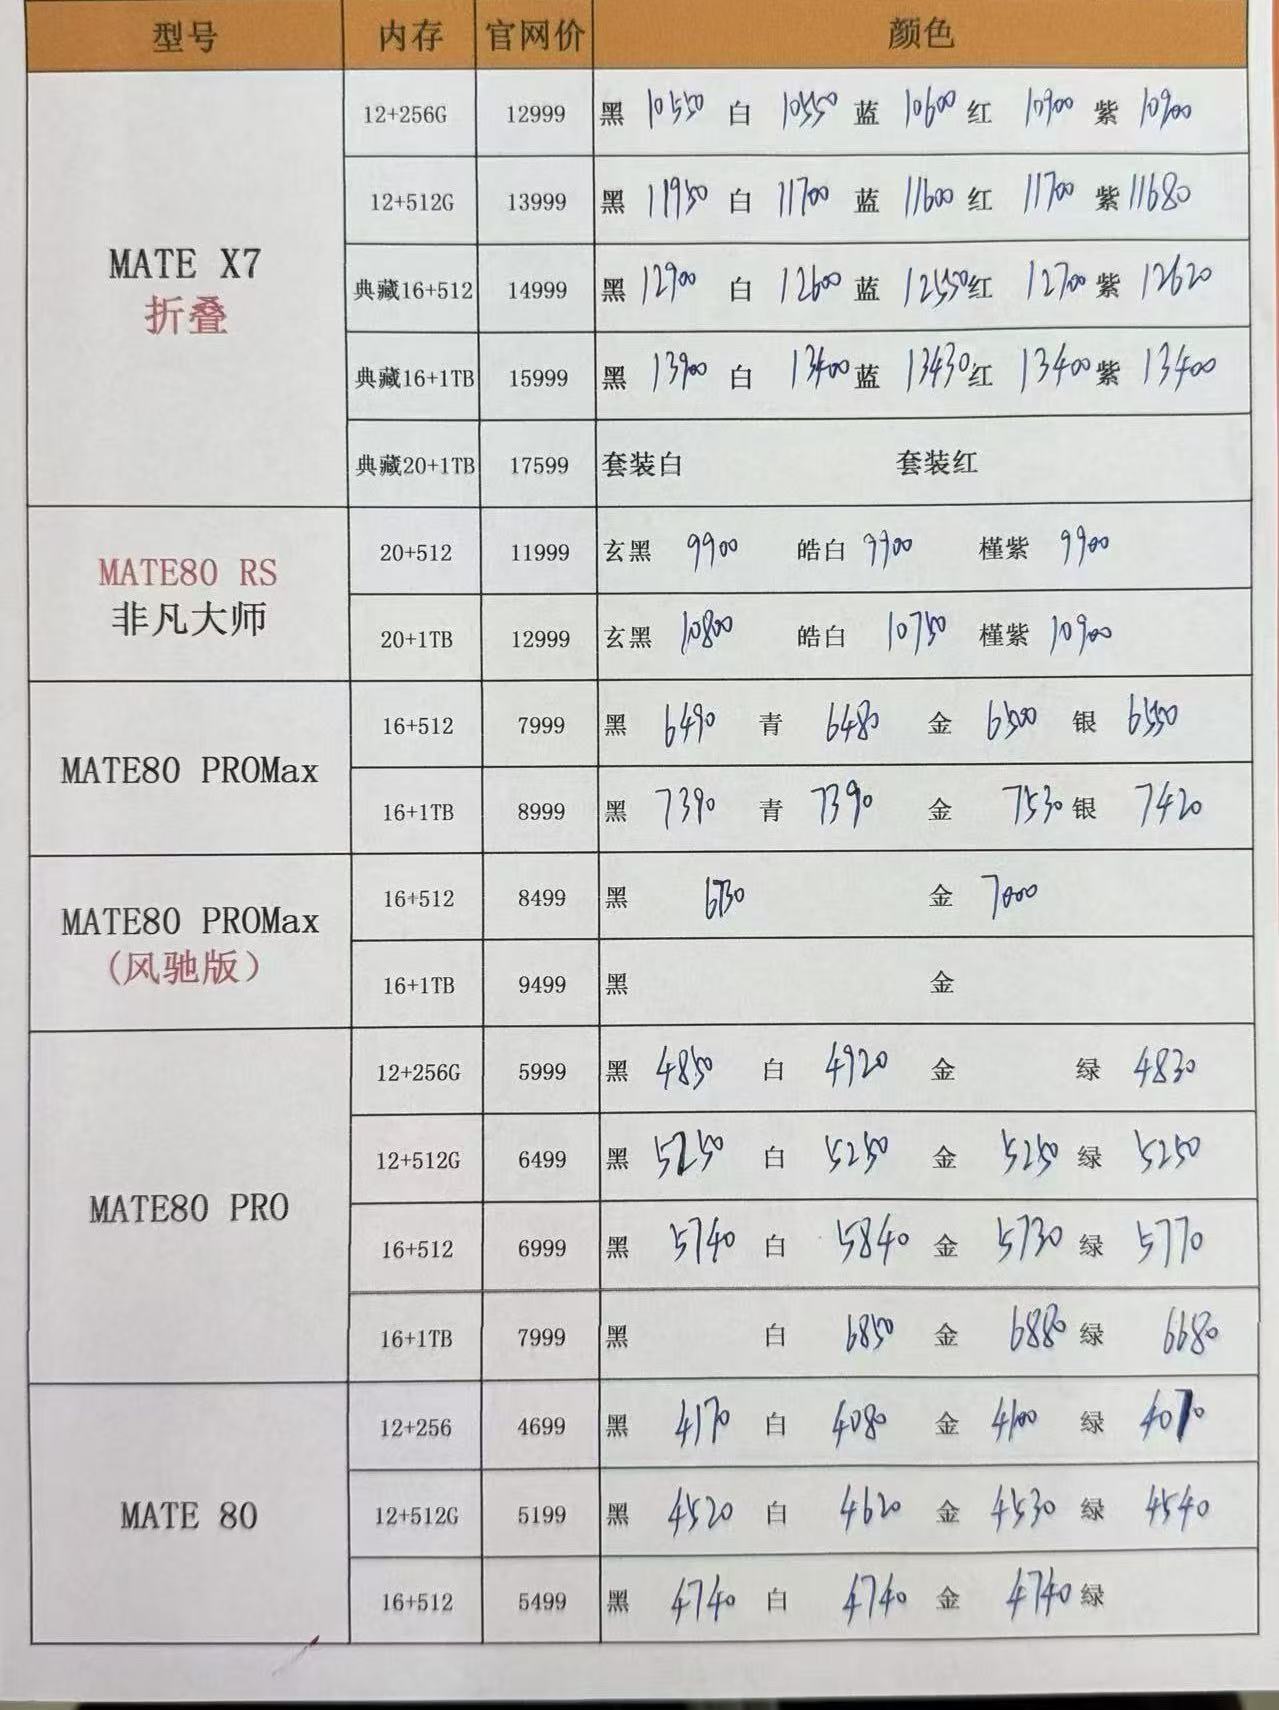 型号 内存 官网价 颜色
MATE X7
折叠
12+256G 12999 黑 10550 白 10550 蓝 10600 红 10900 紫 10900
12+512G 13999 黑 11950 白 11700 蓝 11600 红 11700 紫 11680
典藏16+512 14999 黑 12900 白 12600 蓝 12550 红 12700 紫 12620
典藏16+1TB 15999 黑 13900 白 13400 蓝 13430 红 13400 紫 13400
典藏20+1TB 17599 套装白 套装红
MATE80 RS
非凡大师
20+512 11999 玄黑 9900 皓白 9900 槿紫 9900
20+1TB 12999 玄黑 10800 皓白 10750 槿紫 10900
MATE80 PROMax
16+512 7999 黑 6490 青 6480 金 6500 银 6550
16+1TB 8999 黑 7390 青 7390 金 7530 银 7420
MATE80 PROMax
(风驰版)
16+512 8499 黑 金 7000
16+1TB 9499 黑 金
MATE80 PRO
12+256G 5999 黑 4850 白 4920 金 绿 4830
12+512G 6499 黑 5250 白 5250 金 5250 绿 5250
16+512 6999 黑 5740 白 5840 金 5730 绿 5770
16+1TB 7999 黑 白 6850 金 6880 绿 6680
MATE 80
12+256 4699 黑 4170 白 4080 金 4100 绿 4070
12+512G 5199 黑 4520 白 4620 金 4530 绿 4540
16+512 5499 黑 4740 白 4740 金 4740 绿